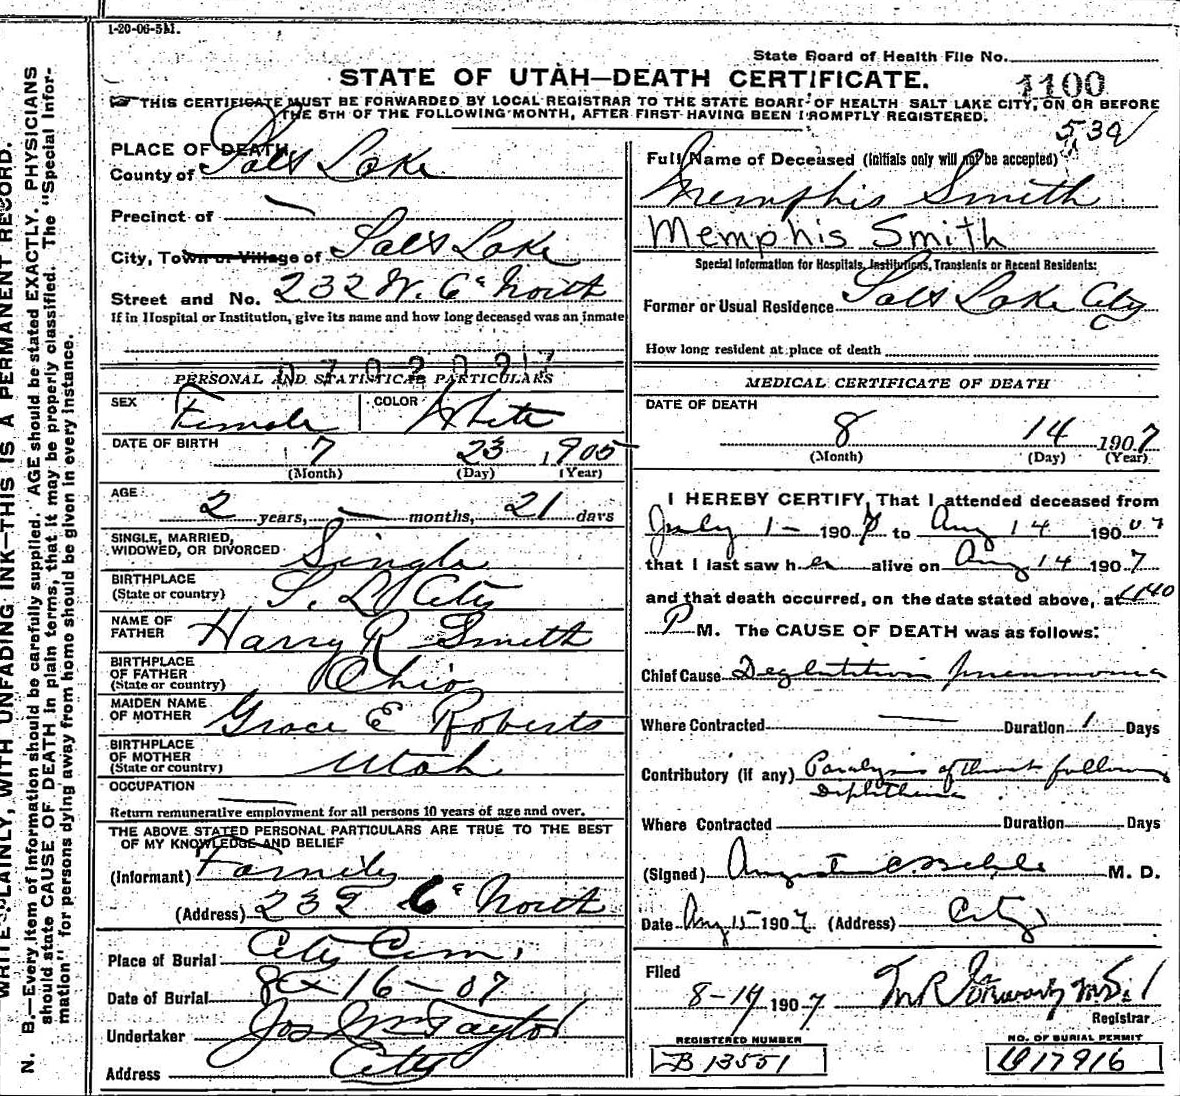 1-20-06-5M.
State Board of Health File No.
STATE OF UTAH—DEATH CERTIFICATE.
1100
THIS CERTIFICATE MUST BE FORWARDED BY LOCAL REGISTRAR TO THE STATE BOARD OF HEALTH SALT LAKE CITY, ON OR BEFORE
THE 5TH OF THE FOLLOWING MONTH, AFTER FIRST HAVING BEEN PROMPTLY REGISTERED.
539
PLACE OF DEATH
County of Salt Lake
Precinct of —
City, Town or Village of Salt Lake
Street and No. 232 W. 6th North
If in Hospital or Institution, give its name and how long deceased was an inmate
PERSONAL AND STATISTICAL PARTICULARS
SEX Female COLOR White
DATE OF BIRTH 7 23 1905
(Month) (Day) (Year)
AGE 2 years, — months, 21 days
SINGLE, MARRIED,
WIDOWED, OR DIVORCED Single
BIRTHPLACE
(State or country) S. L. City
NAME OF
FATHER Harry R Smith
BIRTHPLACE
OF FATHER
(State or country) Ohio
MAIDEN NAME
OF MOTHER Grace E Roberts
BIRTHPLACE
OF MOTHER
(State or country) Utah
OCCUPATION —
Return remunerative employment for all persons 10 years of age and over.
THE ABOVE STATED PERSONAL PARTICULARS ARE TRUE TO THE BEST
OF MY KNOWLEDGE AND BELIEF
(Informant) Family
(Address) 232 6th North
Place of Burial City Cem.
Date of Burial 8-16-07
Undertaker Jos Wm Taylor
Address City
Full Name of Deceased (Initials only will not be accepted)
Memphis Smith
Memphis Smith
Special Information for Hospitals, Institutions, Transients or Recent Residents:
Former or Usual Residence Salt Lake City
How long resident at place of death
MEDICAL CERTIFICATE OF DEATH
DATE OF DEATH
8 14 1907
(Month) (Day) (Year)
I HEREBY CERTIFY, That I attended deceased from
July 1- 1907 to Aug 14 190 07
that I last saw her alive on Aug 14 1907
and that death occurred, on the date stated above, at 440
P M. The CAUSE OF DEATH was as follows:
Chief Cause Deglutition pneumonia
Where Contracted — Duration 1 Days
Contributory (if any) Paralysis of throat following
Diphtheria
Where Contracted Duration Days
(Signed) M. D.
Date Aug 15 1907 (Address) City
Filed
8-19 1907
Registrar
REGISTERED NUMBER
B 13551
NO. OF BURIAL PERMIT
17916
N. B.—Every item of information should be carefully supplied. AGE should be stated EXACTLY. PHYSICIANS
should state CAUSE OF DEATH in plain terms, that it may be properly classified. The "Special Infor-
mation" for persons dying away from home should be given in every instance.
WRITE PLAINLY, WITH UNFADING INK—THIS IS A PERMANENT RECORD.